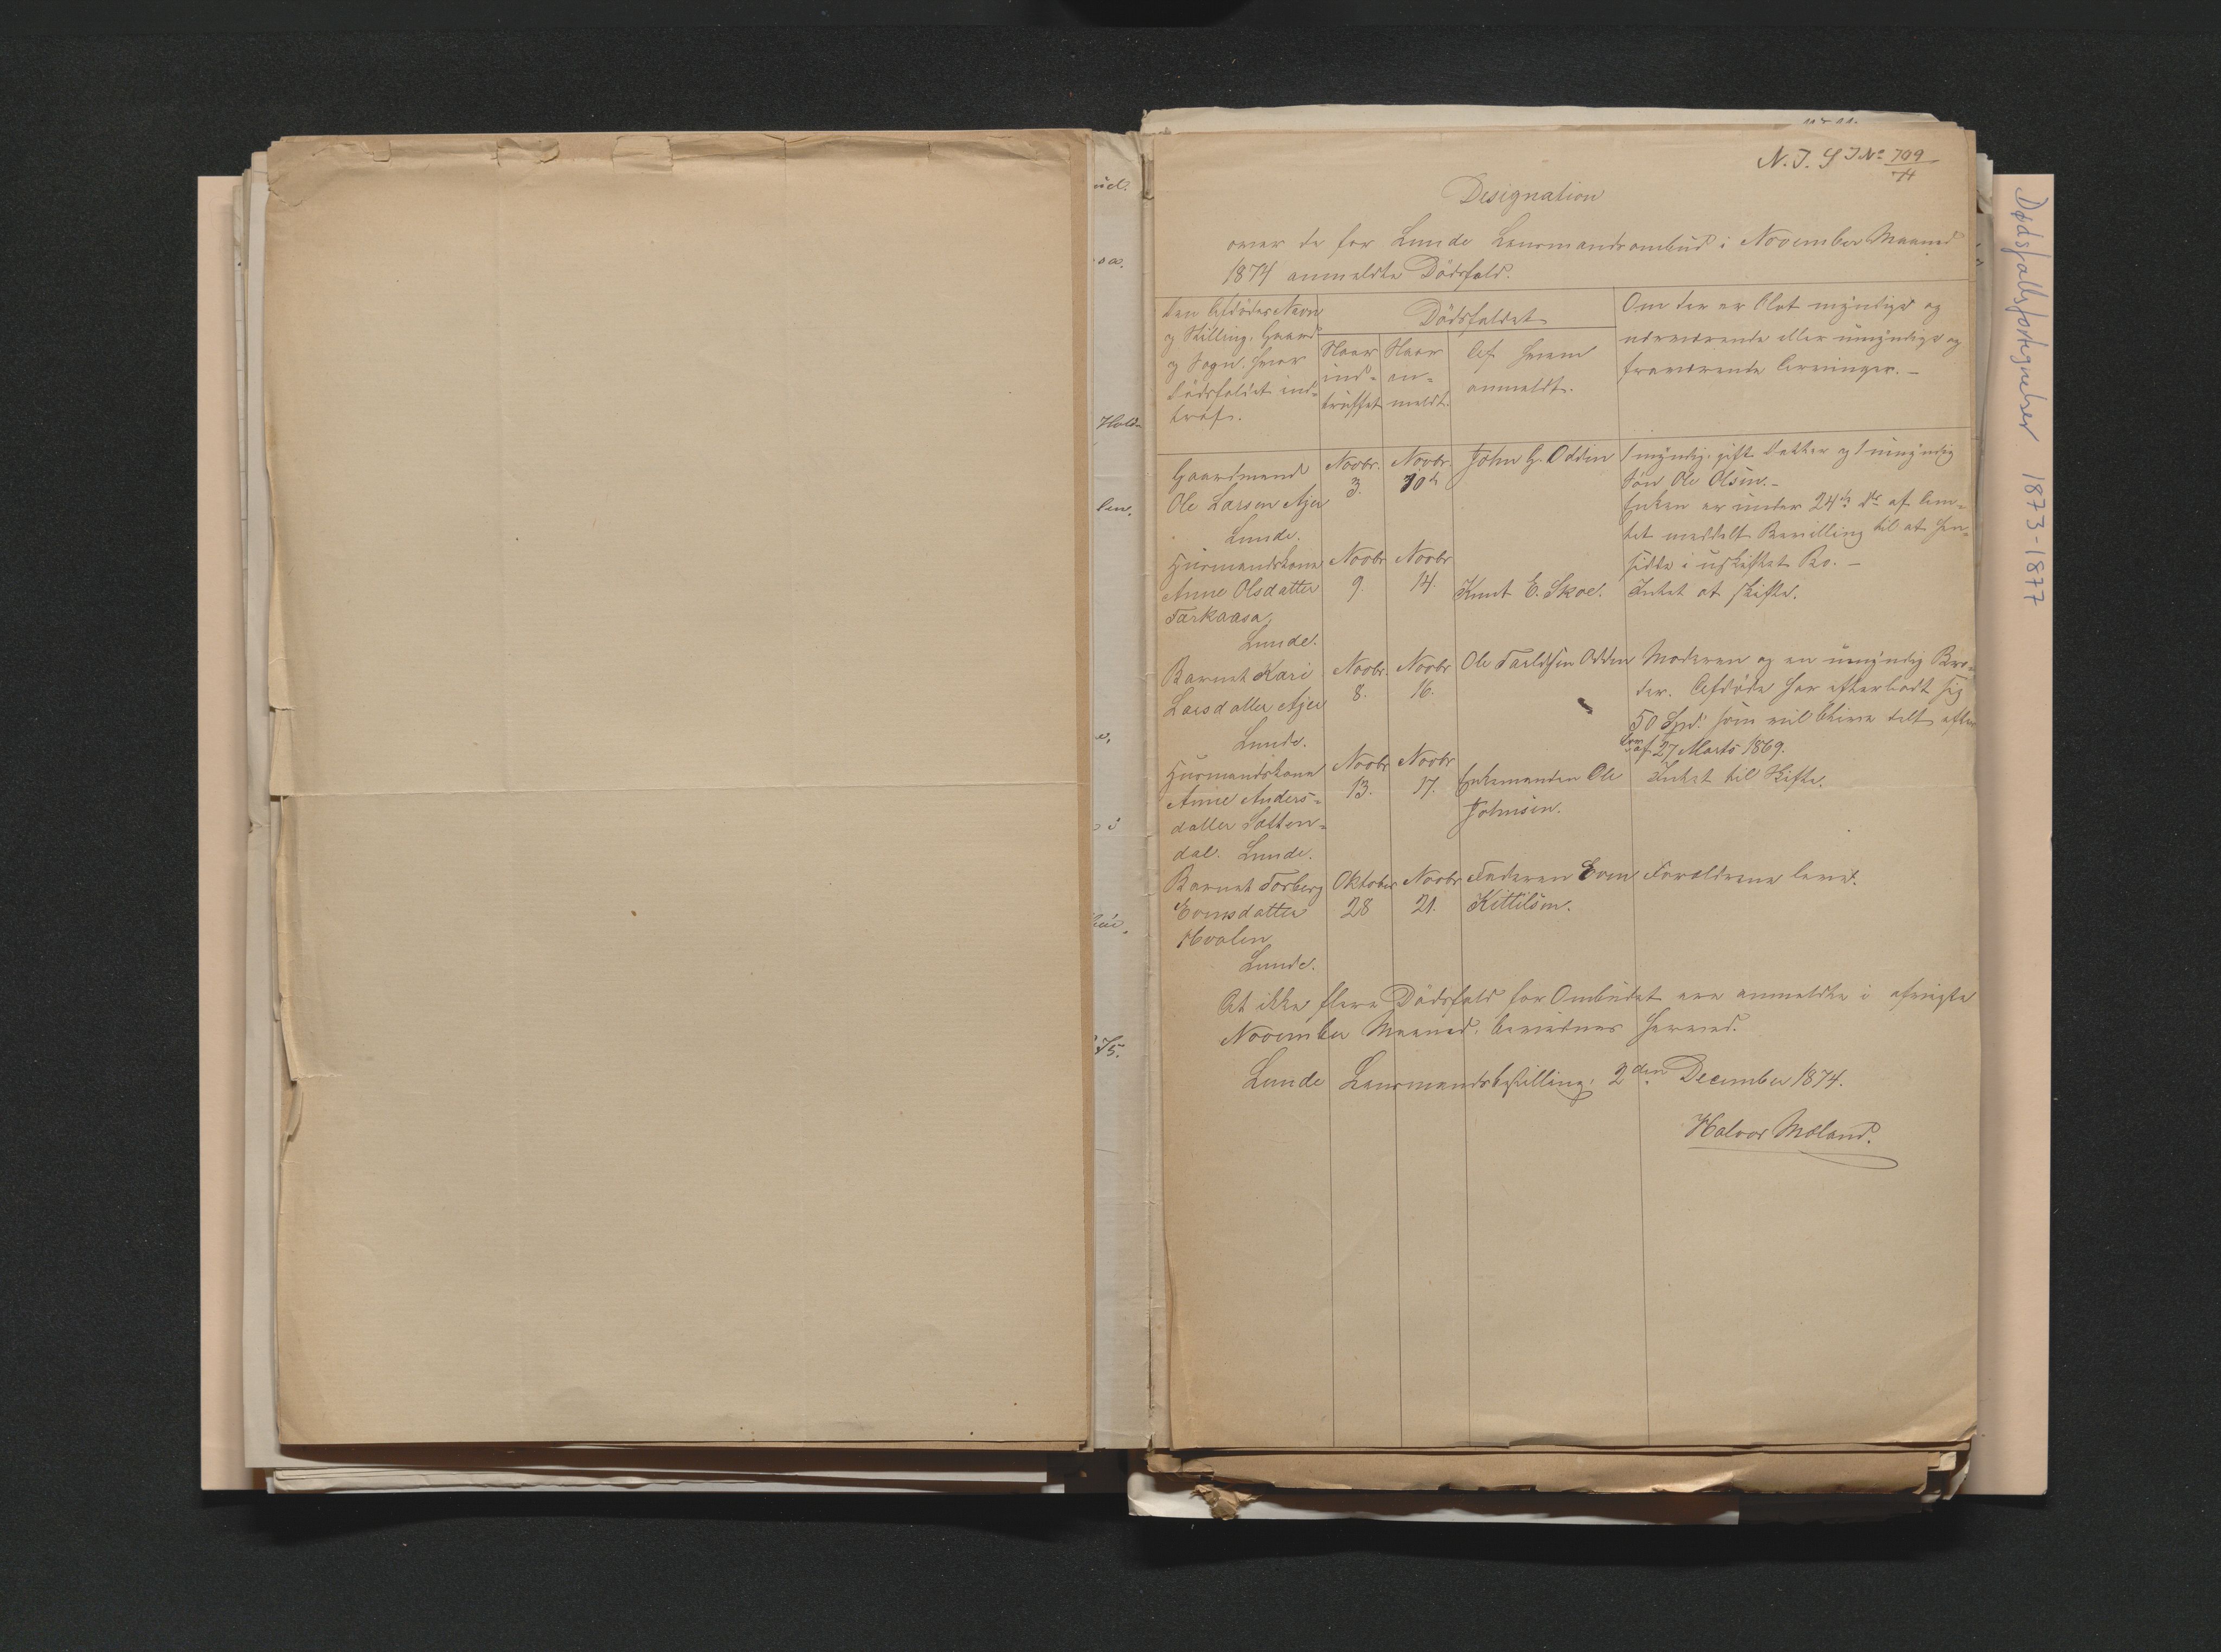 N. T. S J No 709/74
Designation
over de for Lunde Lensmandsombud i November Maaned
1874 anmeldte Dödsfald.
Den Afdödes Navn
og Stilling, Gaard
og Sogn, hvor
Dödsfaldet ind-
traf.
Dödsfaldet
Naar
ind-
truffet
Naar
an-
meldt.
Af hvem
anmeldt.
Om der er blot myndige og
nærværende eller umyndige og
fraværende Arvinger. -
Gaardmand
Ole Larsen Ajer
Lunde.
Novbr.
3.
Novbr.
10de
John G. Odden
1 myndig, gift Datter og 1 umyndig
Sön Ole Olsen. -
Enken er under 24de ds af Am-
tet meddelt Bevilling til at hen-
sidde i uskiftet Bo. -
Husmandskone
Anne Olsdatter
Tarkaasa,
Lunde.
Novbr
9.
Novbr
14.
Knut E. Skoe.
Intet at skifte.
Barnet Kari
Larsdatter Ajer
Lunde.
Novbr.
8.
Novbr
16.
Ole Tarldsen Odden
Moderen og en umyndig Bro-
der. Afdöde har efterladt sig
50 Spd. som vil blive delt efter
Lov af 27 Marts 1869.
Husmandskone
Anne Anders-
datter Satten-
dal. Lunde.
Novbr
13.
Novbr
17.
Enkemanden Ole
Johnsen.
Intet til Skifte.
Barnet Torberg
Evensdatter
Hvalen
Lunde.
Oktober
28
Novbr
21.
Faderen Even
Kittilsen.
Forældrene lever.
At ikke flere Dödsfald for Ombudet ere anmeldte i afvigte
November Maaned, bevidnes herved.
Lunde Lensmandsbestilling, 2den December 1874.
Halvor Moland.
Dødsfallsfortegnelser 1873-1877